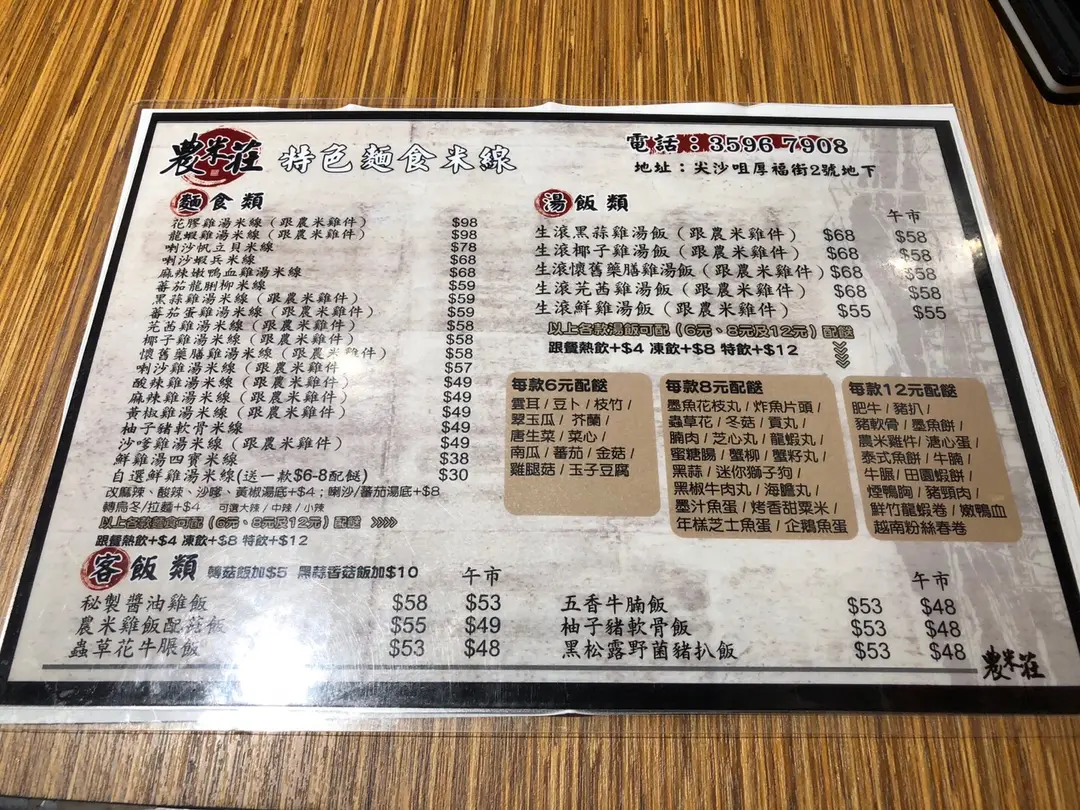 農米莊 特色麵食米線
電話：3596 7908
地址：尖沙咀厚福街2號地下
麵食類
花膠雞湯米線（跟農米雞件） $98
龍蝦雞湯米線（跟農米雞件） $98
喇沙帆立貝米線 $78
喇沙蝦兵米線 $68
麻辣嫩鴨血雞湯米線 $68
蕃茄龍脷柳米線 $59
黑蒜雞湯米線（跟農米雞件） $59
蕃茄蛋雞湯米線（跟農米雞件） $59
芫茜雞湯米線（跟農米雞件） $58
椰子雞湯米線（跟農米雞件） $58
懷舊藥膳雞湯米線（跟農米雞件） $58
喇沙雞湯米線（跟農米雞件） $57
酸辣雞湯米線（跟農米雞件） $49
麻辣雞湯米線（跟農米雞件） $49
黃椒雞湯米線（跟農米雞件） $49
柚子豬軟骨米線 $49
沙嗲雞湯米線（跟農米雞件） $49
鮮雞湯四寶米線 $38
自選鮮雞湯米線(送一款$6-8配餸) $30
改麻辣、酸辣、沙嗲、黃椒湯底+$4；喇沙/蕃茄湯底+$8
轉烏冬/拉麵+$4 可選大辣/中辣/小辣
以上各款麵食可配（6元、8元及12元）配餸 >>>>
跟餐熱飲+$4 凍飲+$8 特飲+$12
湯飯類 午市
生滾黑蒜雞湯飯（跟農米雞件） $68 $58
生滾椰子雞湯飯（跟農米雞件） $68 $58
生滾懷舊藥膳雞湯飯（跟農米雞件） $68 $58
生滾芫茜雞湯飯（跟農米雞件） $68 $58
生滾鮮雞湯飯（跟農米雞件） $55 $55
以上各款湯飯可配（6元、8元及12元）配餸
跟餐熱飲+$4 凍飲+$8 特飲+$12
每款6元配餸
雲耳/豆卜/枝竹/
翠玉瓜/芥蘭/
唐生菜/菜心/
南瓜/蕃茄/金菇/
雞腿菇/玉子豆腐
每款8元配餸
墨魚花枝丸/炸魚片頭/
蟲草花/冬菇/貢丸/
腩肉/芝心丸/龍蝦丸/
蜜糖腸/蟹柳/蟹籽丸/
黑蒜/迷你獅子狗/
黑椒牛肉丸/海膽丸/
墨汁魚蛋/烤香甜粟米/
年糕芝士魚蛋/企鵝魚蛋
每款12元配餸
肥牛/豬扒/
豬軟骨/墨魚餅/
農米雞件/溏心蛋/
泰式魚餅/牛腩/
牛𦟌/田園蝦餅/
煙鴨胸/豬頸肉/
鮮竹龍蝦卷/嫩鴨血
越南粉絲春卷
客飯類 轉菇飯加$5 黑蒜香菇飯加$10 午市
秘製醬油雞飯 $58 $53
農米雞飯配菇飯 $55 $49
蟲草花牛𦟌飯 $53 $48
午市
五香牛腩飯 $53 $48
柚子豬軟骨飯 $53 $48
黑松露野菌豬扒飯 $53 $48
農米莊